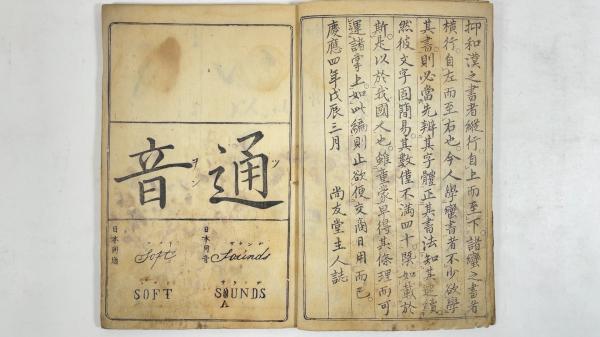 抑和漢之書者縱行自上而至下諸蠻之書者
橫行自左而至右也今人學蠻書者不少欲學
其書則必當先辨其字體正其書法知其連續
然彼文字固簡易其數僅不滿四十槩如載於
斯是以於我國人也雖童蒙早得其條理而可
運諸掌上如此編則止欲便交商日用而已
慶應四年戊辰三月 尚友堂主人誌
通音
ツ
ヲン
日本用音
Sounds
SOUNDS
日本用通
Soft
SOFT